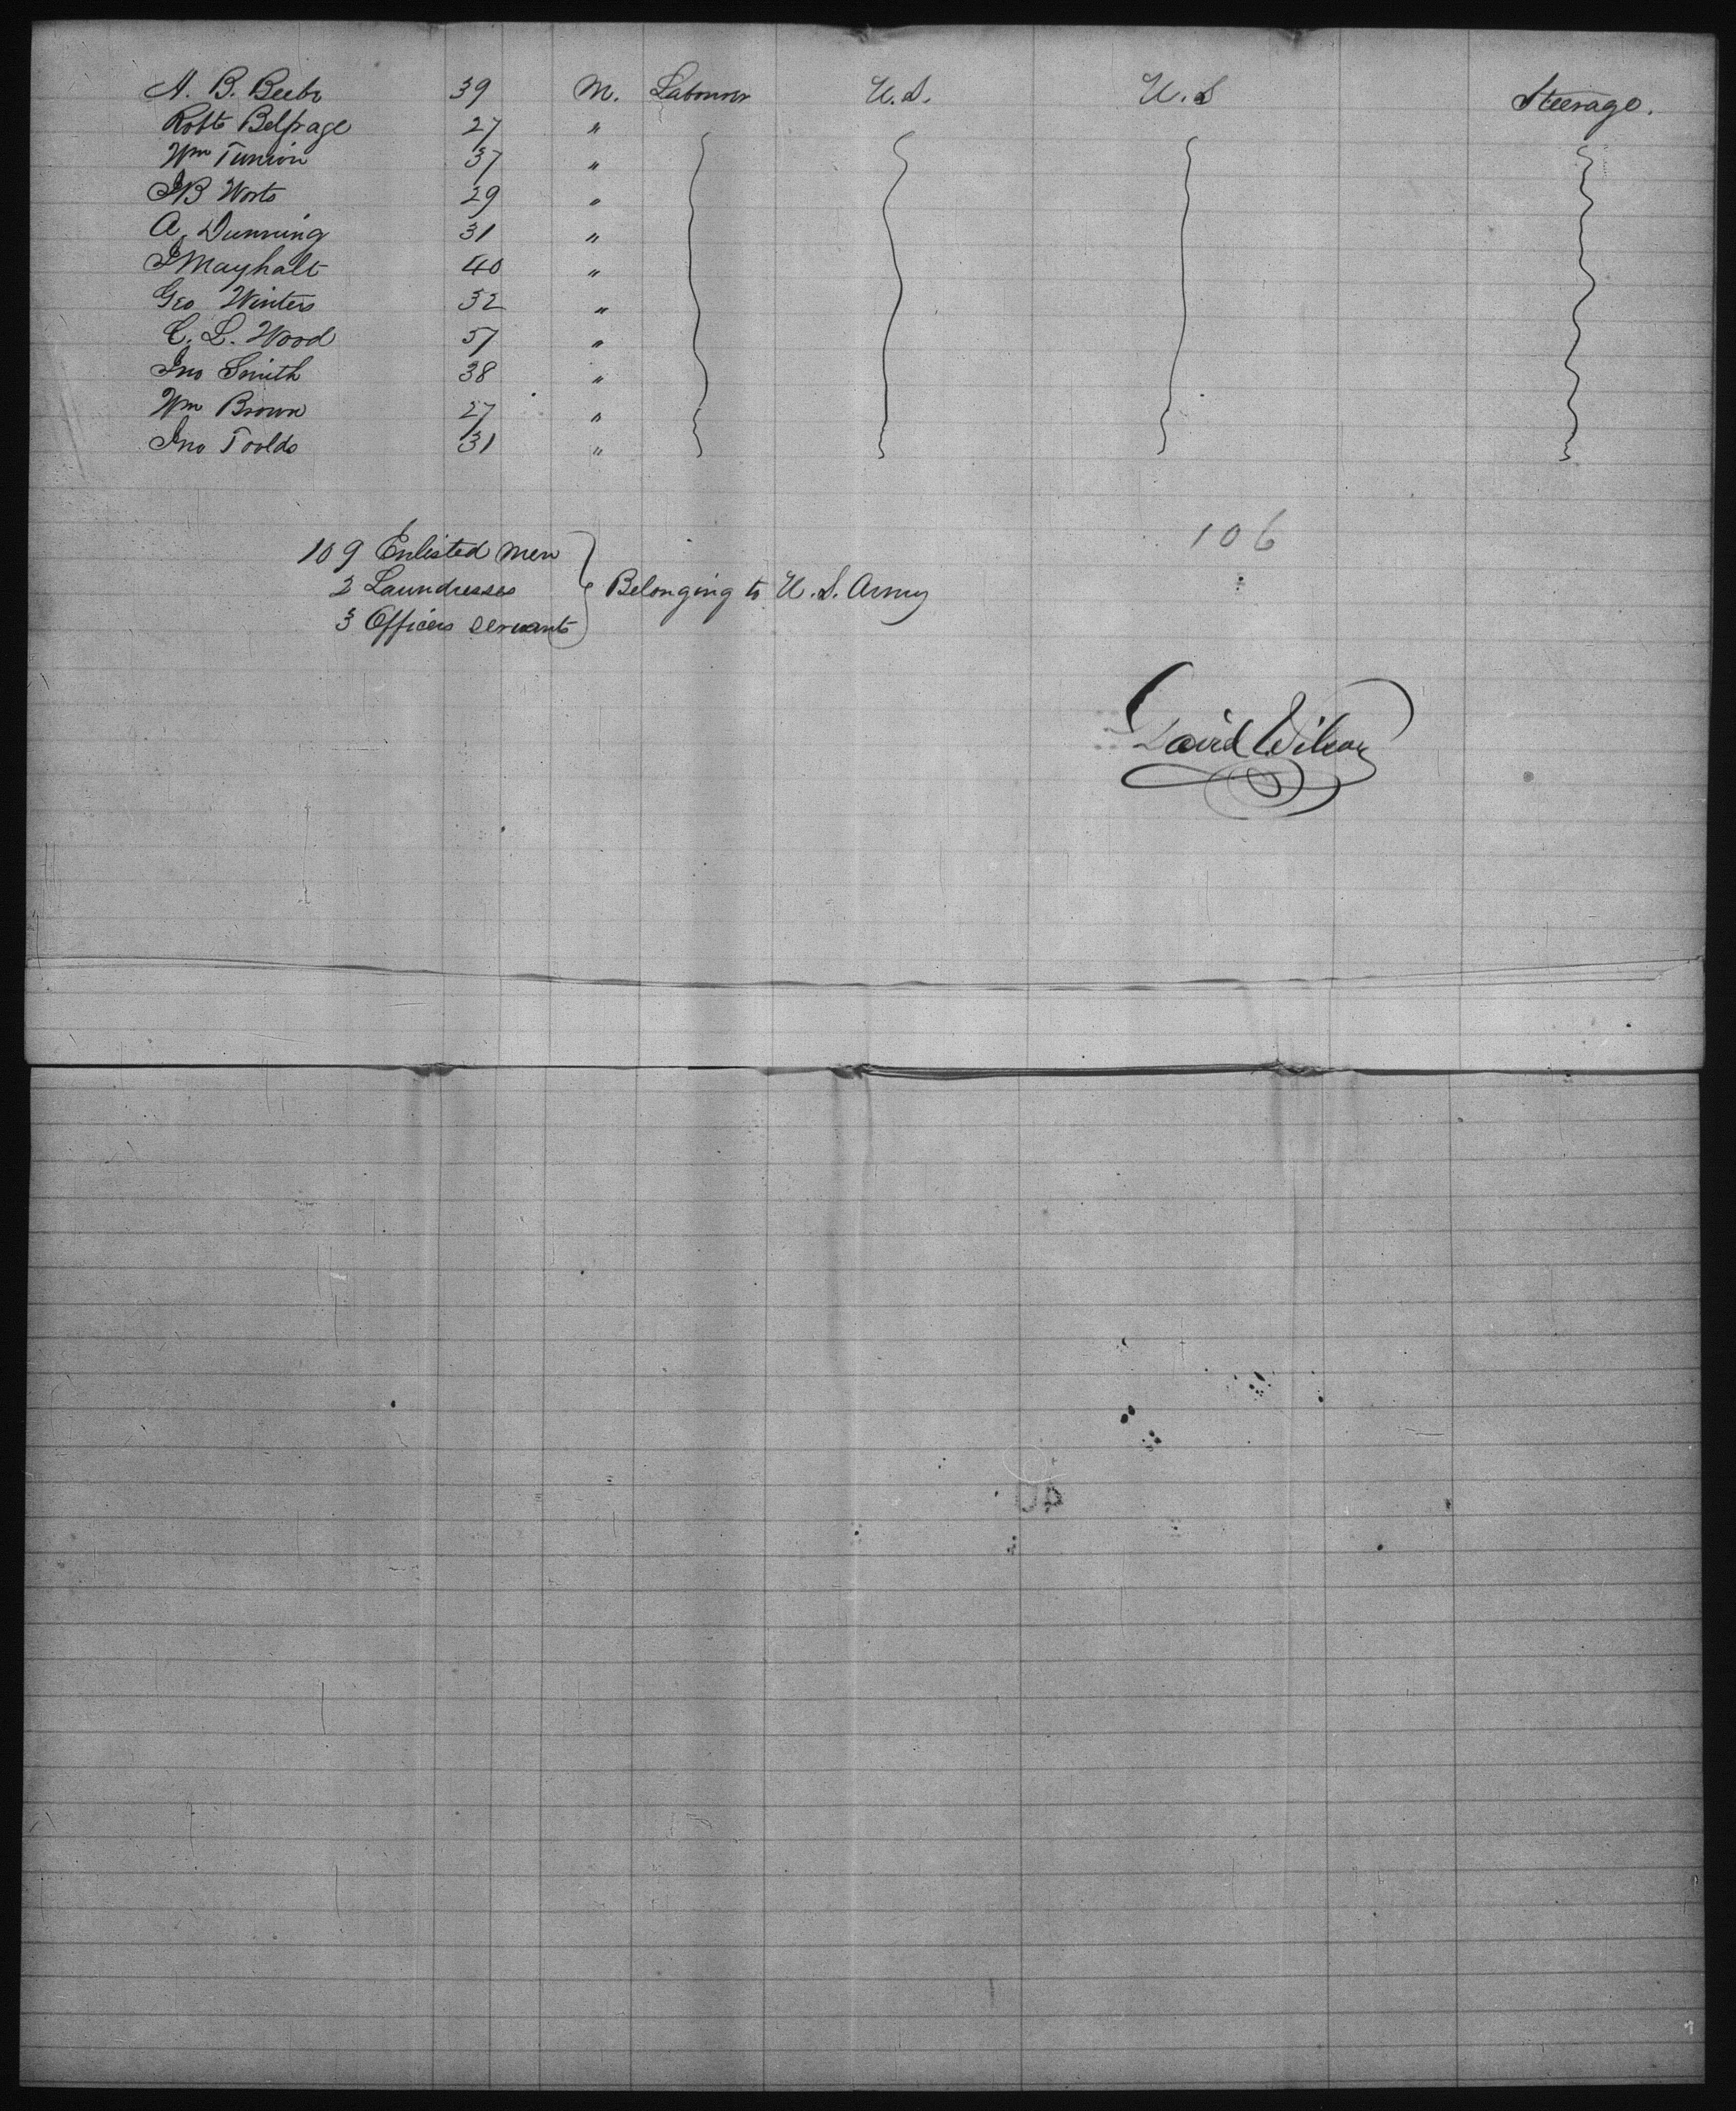 A. B. Beebe 39 M. Labourer U.S. U.S Steerage.
Robt Belfrage 27 "
Wm 37 "
JB Worts 29 "
A. Dunning 31 "
J Mayhalt 40 "
Geo Winters 32 "
C. L. Wood 57 "
Jno Smith 38 "
Wm Brown 27 "
Jno Toolds 31 "
109 Enlisted men
2 Laundresses Belonging to U.S. Army
3 Officers servants
106
David Wilson
40